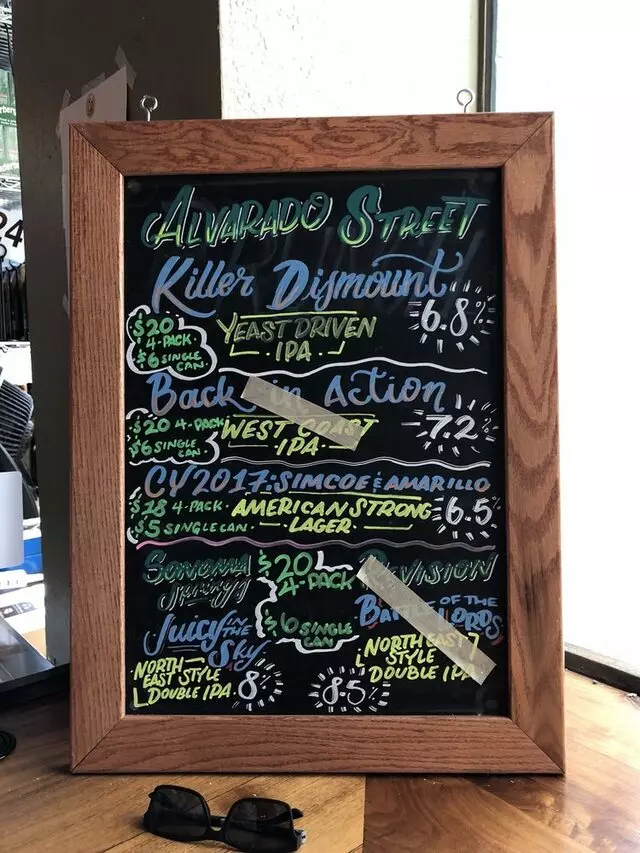 ALVARADO STREET
Killer Dismount
6.8%
$20
4-PACK
$6 SINGLE
CAN
YEAST DRIVEN
IPA
Back in Action
$20 4-PACK
$6 SINGLE
CAN
WEST COAST
IPA
7.2%
CY2017: SIMCOE & AMARILLO
$18 4-PACK
$5 SINGLE CAN
AMERICAN STRONG
LAGER
6.5%
SONOMA
Springs
JUICY IN THE
Sky
NORTH
EAST STYLE
DOUBLE IPA
8%
$20
4-PACK
$6 SINGLE
CAN
REVISION
BATTLE OF THE
LORDS
NORTH EAST
STYLE
DOUBLE IPA
8.5%
24